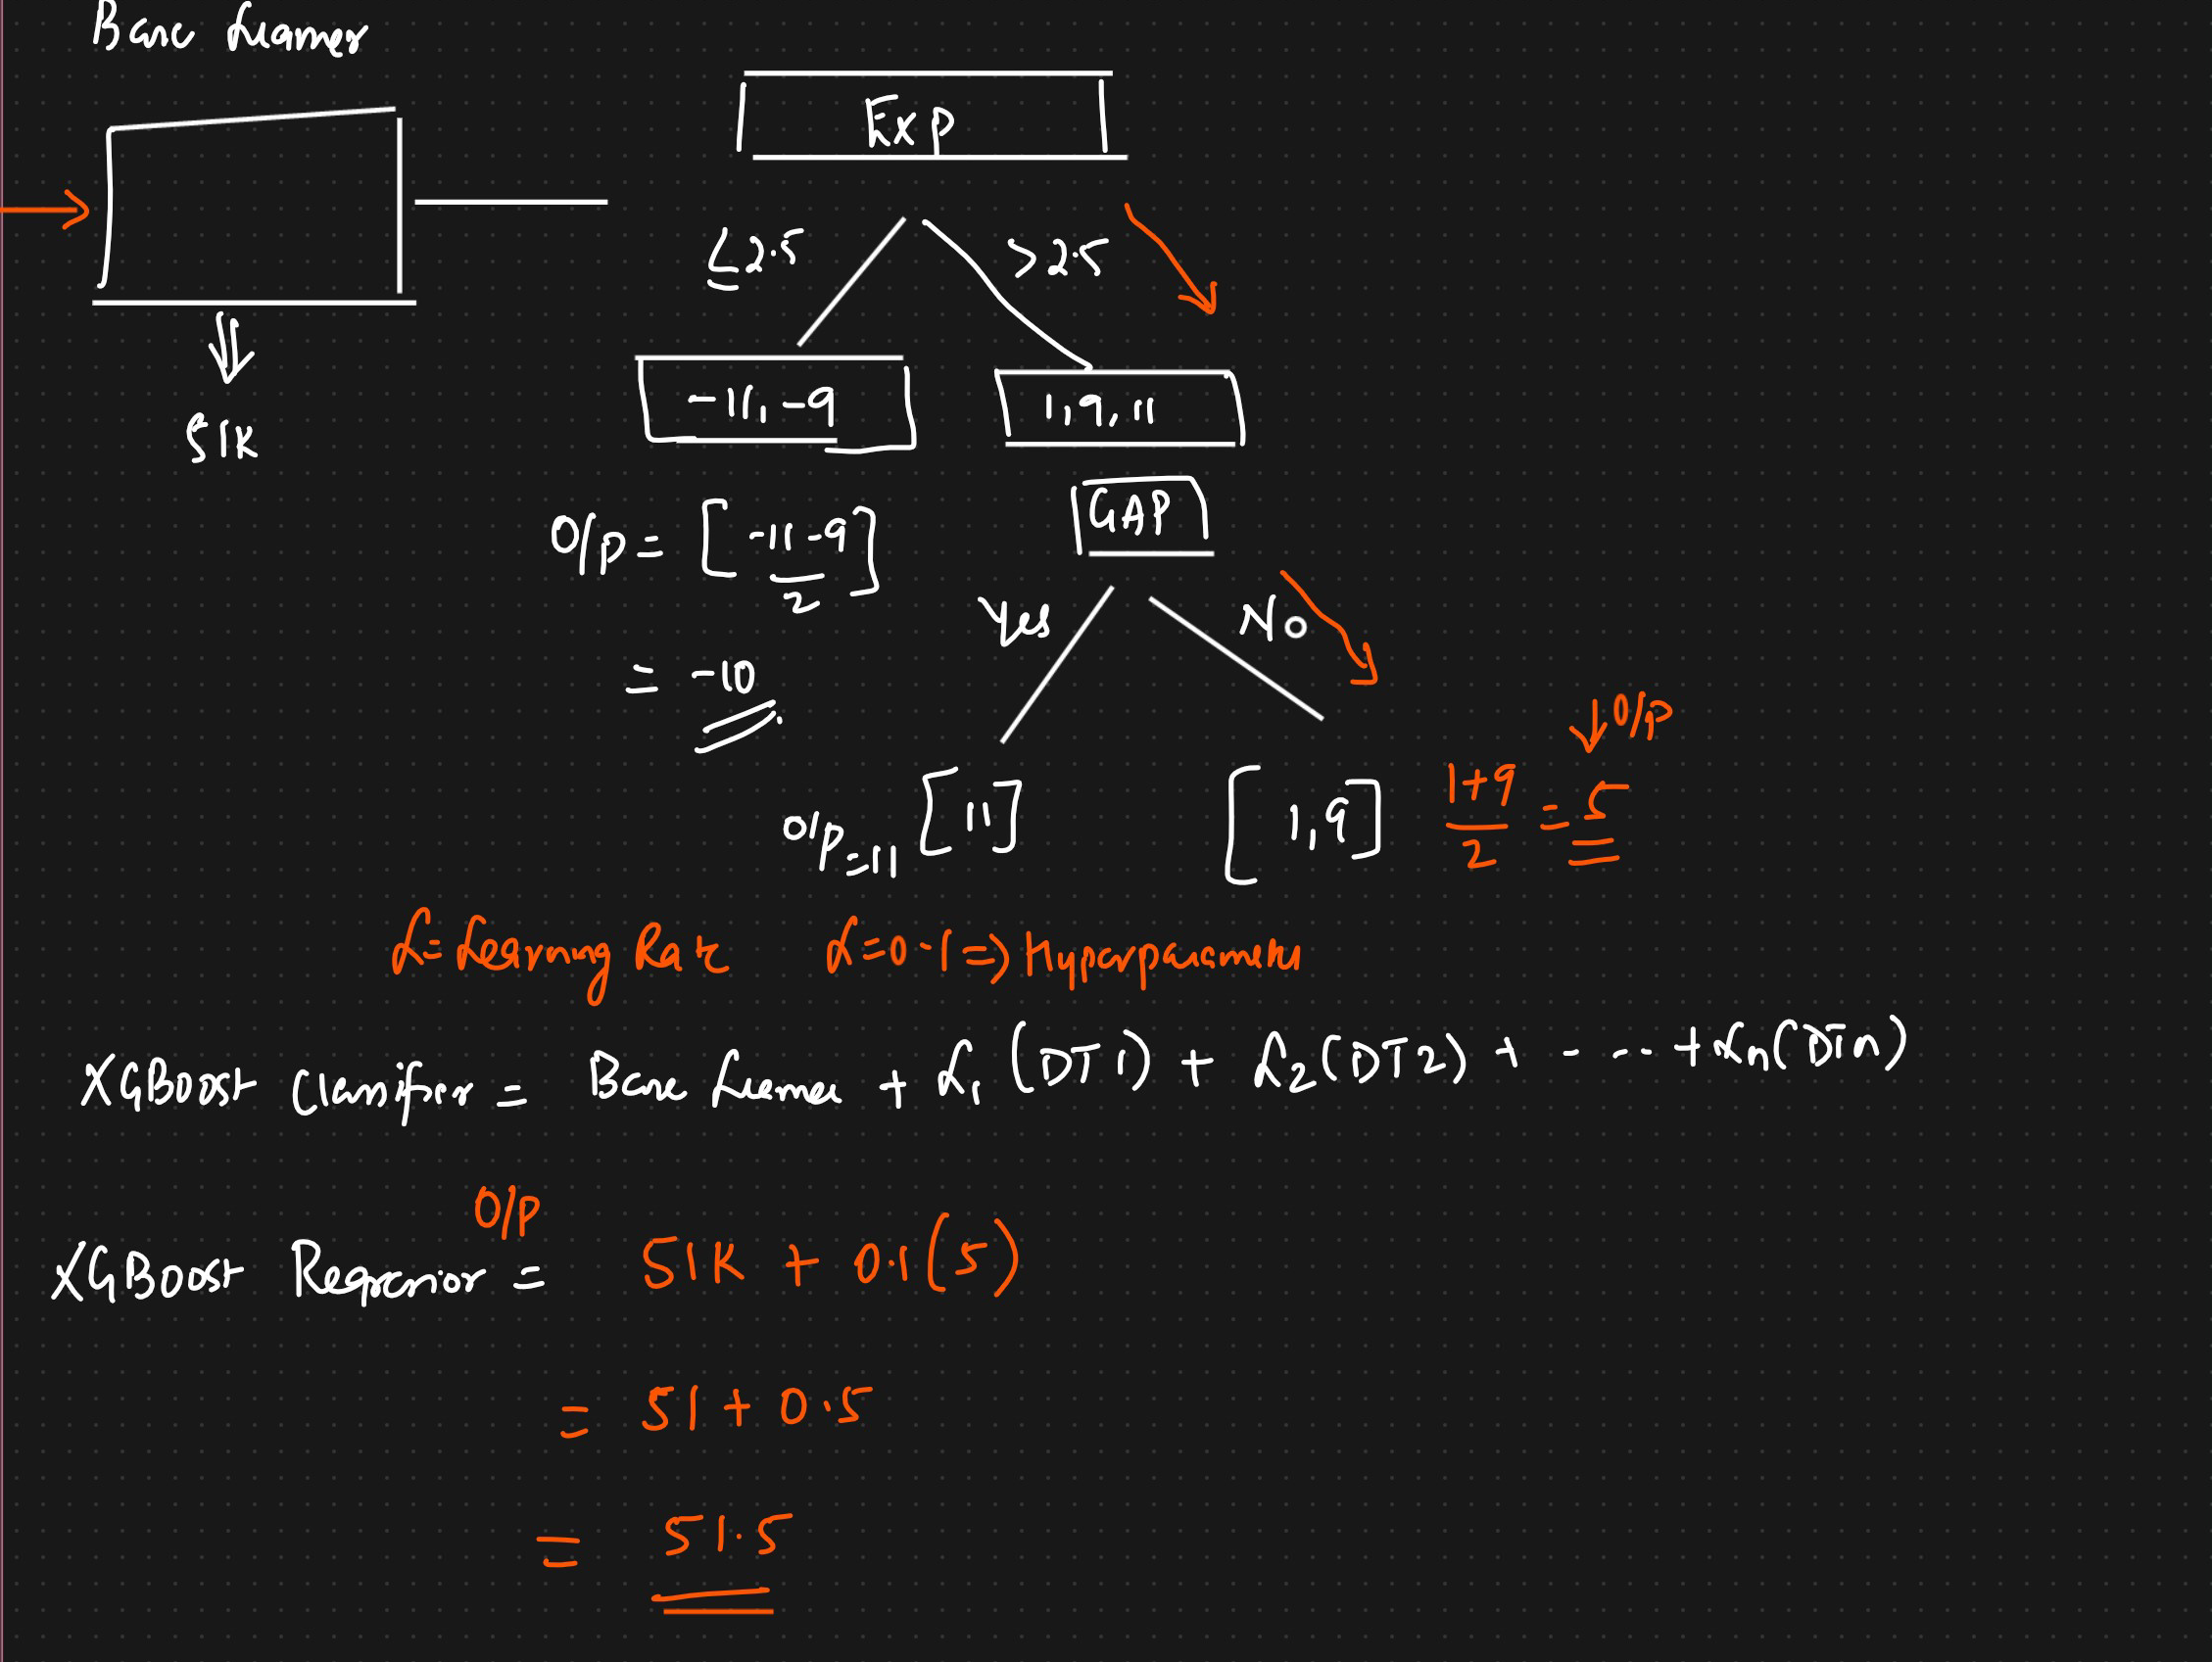 Base Learner
Exp
≤ 2.5
> 2.5
-11, -9
1, 9, 11
51K
GAP
O/p = [-11-9]
2
Yes
No
= -10
↓ O/p
O/p = 11 [11]
[1, 9] 1+9 = 5
2
α = Learning Rate α = 0.1 => Hyperparameter
XGBoost Classifier = Base Learner + α1 (DT1) + α2 (DT2) + ---- + αn (DTn)
O/p
XGBoost Regressor = 51K + 0.1(5)
= 51 + 0.5
= 51.5